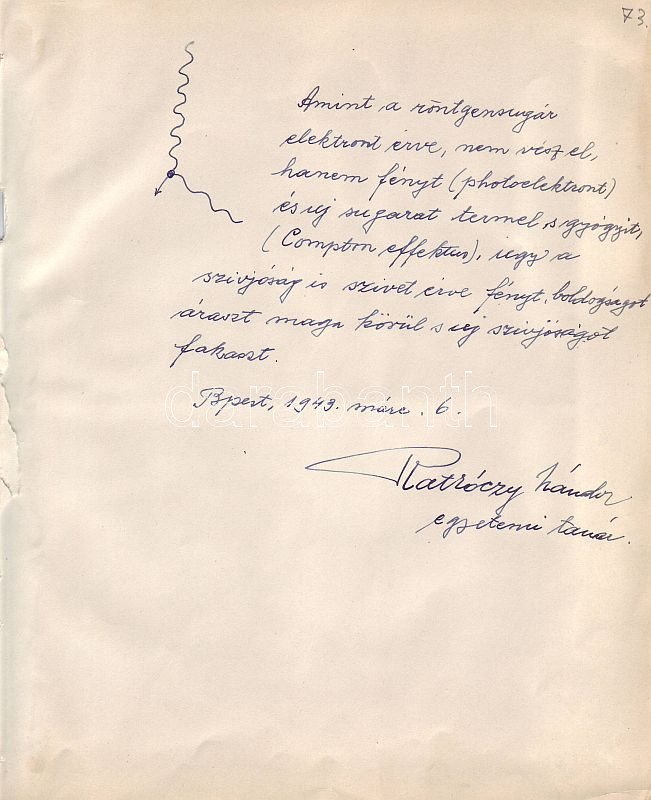 73.
Amint a röntgensugár
elektront érve, nem vész el,
hanem fényt (photoelektront)
és uj sugarat termel s gyógyit,
(Compton effektus), ugy a
szivjóság is szivet érve fényt, boldogságot
áraszt maga körül s uj szivjóságot
fakaszt.
darabanth
Bpest, 1943. márc. 6.
Ratkóczy Nándor
egyetemi tanár.